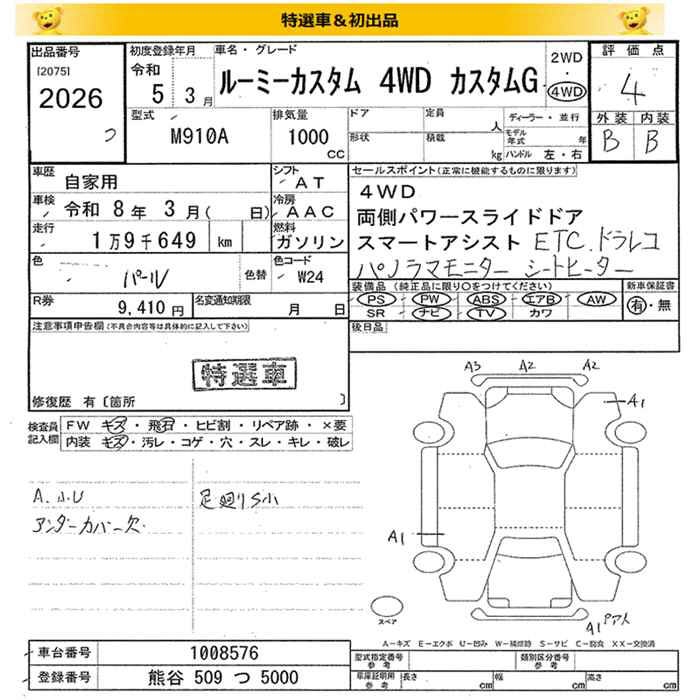 特選車＆初出品
出品番号
[2075]
2026
つ
初度登録年月
令和
5 3月
車名・グレード
ルーミーカスタム 4WD カスタムG
2WD
・
4WD
評価点
4
外装 内装
B B
型式
M910A
排気量
1000
CC
ドア
形状
定員
人
積載
kg
ディーラー・並行
モデル年式 年
ハンドル 左・右
車歴
自家用
車検
令和 8年 3月( 日)
走行
1万9千649 km
色
パール
色替
R券
9,410円
名変通知期限
月 日
シフト
AT
冷房
AAC
燃料
ガソリン
色コード
W24
セールスポイント(正常に機能するものに限ります)
4WD
両側パワースライドドア
スマートアシスト ETC.ドラレコ
パノラマモニター シートヒーター
装備品 (純正品に限り○をつけてください)
PS PW ABS エアB AW
SR ナビ TV カワ
新車保証書
有・無
後日品
注意事項申告欄(不具合内容等は具体的に記入して下さい)
特選車
修復歴 有〔箇所 〕
検査員記入欄
FW キズ・飛石・ヒビ割・リペア跡・×要
内装 キズ・汚レ・コゲ・穴・スレ・キレ・破レ
A.小U
アンダーカバー欠
足廻りS小
A3 A2 A2
A1
A1
A1 ﾘｱ人
スペア
A－キズ E－エクボ U－凹み W－補修跡 S－サビ C－腐食 XX－交換済
車台番号
1008576
登録番号
熊谷 509 つ 5000
型式指定番号
参考
類別区分番号
参考
車庫証明用
参考
長さ cm
幅 cm
高さ cm